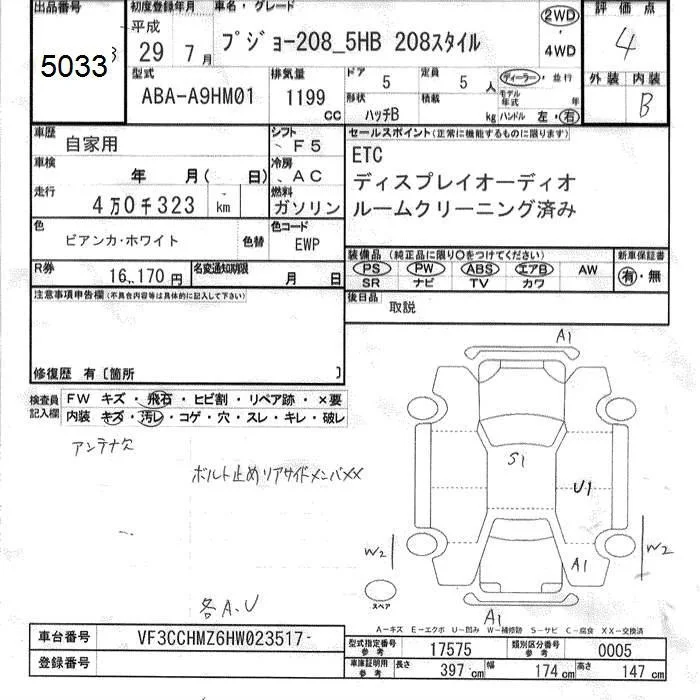 出品番号
5033
3
初度登録年月
平成
29年 7月
車名・グレード
プジョー208_5HB 208スタイル
2WD
4WD
評価点
4
型式
ABA-A9HM01
排気量
1199
CC
ドア
5
定員
5 人
ディーラー・並行
モデル年式 年
形状
ハッチB
積載
kg
ハンドル 左・右
外装 内装
B
車歴
自家用
シフト
F5
車検
年 月( 日)
冷房
AC
走行
4万0千323 km
燃料
ガソリン
色
ビアンカ・ホワイト
色替
色コード
EWP
R券
16,170円
名変通知期限
月 日
セールスポイント(正常に機能するものに限ります)
ETC
ディスプレイオーディオ
ルームクリーニング済み
装備品 (純正品に限り○をつけてください)
PS PW ABS エアB AW
SR ナビ TV カワ
新車保証書
有・無
後日品
取説
注意事項申告欄(不具合内容等は具体的に記入して下さい)
修復歴 有〔箇所 〕
検査員記入欄
FW キズ・飛石・ヒビ割・リペア跡・×要
内装 キズ・汚レ・コゲ・穴・スレ・キレ・破レ
アンテナ欠
ボルト止めリアサイドメンバXX
各A、U
A1
S1
U1
W2
W2
A1
A1
スペア
A-キズ E-エクボ U-凹み W-補修跡 S-サビ C-腐食 XX-交換済
車台番号
VF3CCHMZ6HW023517-
登録番号
型式指定番号 参考
17575
類別区分番号 参考
0005
車庫証明用 参考
長さ 397 cm
幅 174 cm
高さ 147 cm